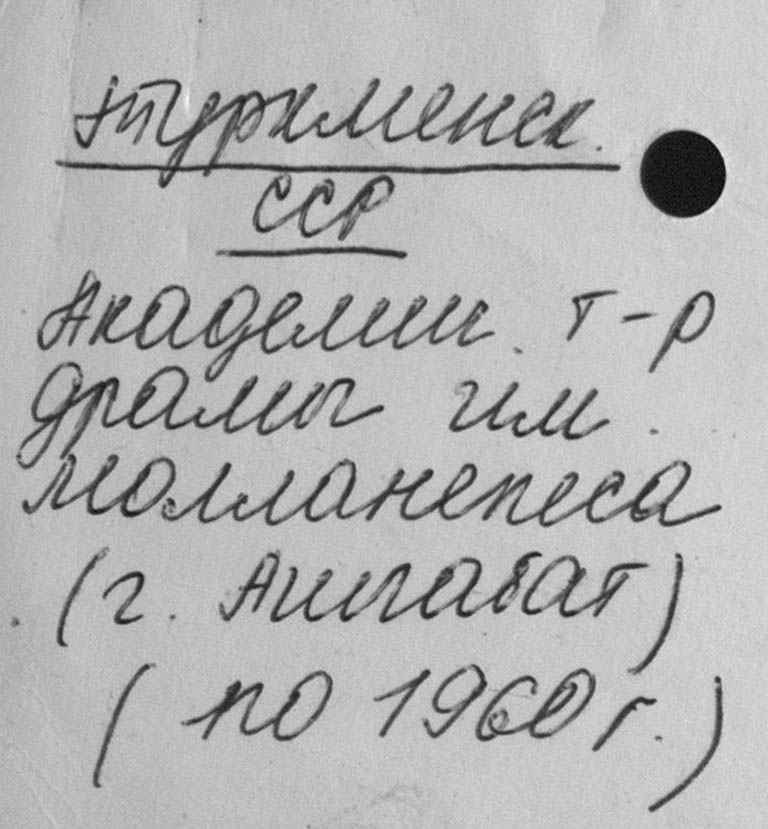 Туркменск.
ССР
Академич. т-р
драмы им.
Молланепеса
(г. Ашгабат)
(по 1960 г.)